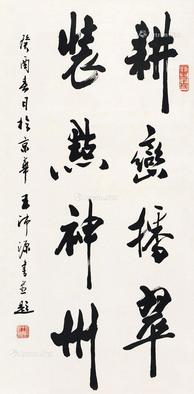 耕峦播翠
装点神州
癸酉春日於京华王沛源书并题